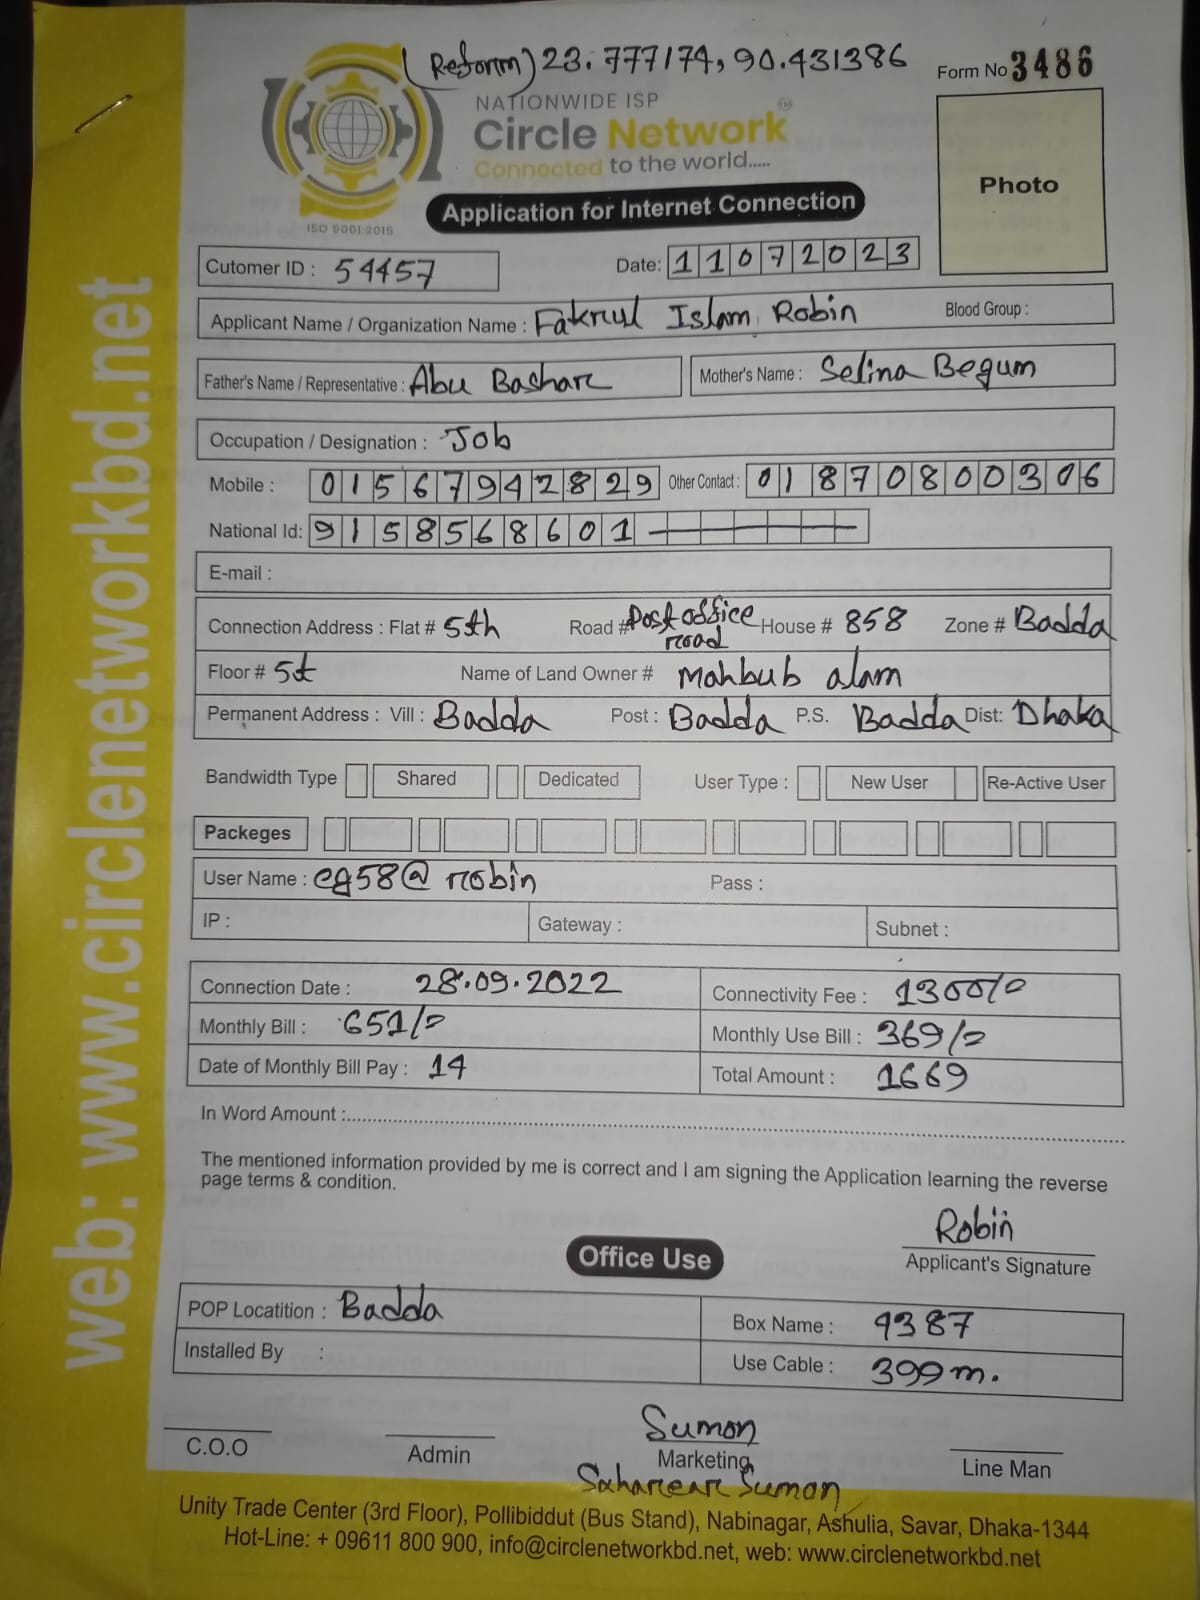 (Reform) 23.777174, 90.431386
Form No 3486
NATIONWIDE ISP
Circle Network
Connected to the world.....
Photo
Application for Internet Connection
ISO 9001:2015
Cutomer ID : 54457
Date: 11072023
Applicant Name / Organization Name : Fakrul Islam Robin Blood Group :
Father's Name / Representative : Abu Bashar Mother's Name : Selina Begum
Occupation / Designation : Job
Mobile : 01567942829 Other Contact : 01870800306
National Id: 9158568601
E-mail :
Connection Address : Flat # 5th Road # Post office road House # 858 Zone # Badda
Floor # 5t Name of Land Owner # Mahbub alam
Permanent Address : Vill : Badda Post : Badda P.S. Badda Dist: Dhaka
Bandwidth Type Shared Dedicated User Type : New User Re-Active User
Packeges
User Name : eg58@robin Pass :
IP : Gateway : Subnet :
Connection Date : 28.09.2022 Connectivity Fee : 1300/=
Monthly Bill : 651/= Monthly Use Bill : 369/=
Date of Monthly Bill Pay : 14 Total Amount : 1669
In Word Amount :
The mentioned information provided by me is correct and I am signing the Application learning the reverse
page terms & condition.
Robin
Applicant's Signature
Office Use
POP Locatition : Badda Box Name : 9387
Installed By : Use Cable : 399m.
Sumon
C.O.O Admin Marketing Line Man
Saharear Sumon
Unity Trade Center (3rd Floor), Pollibiddut (Bus Stand), Nabinagar, Ashulia, Savar, Dhaka-1344
Hot-Line: + 09611 800 900, info@circlenetworkbd.net, web: www.circlenetworkbd.net
web: www.circlenetworkbd.net